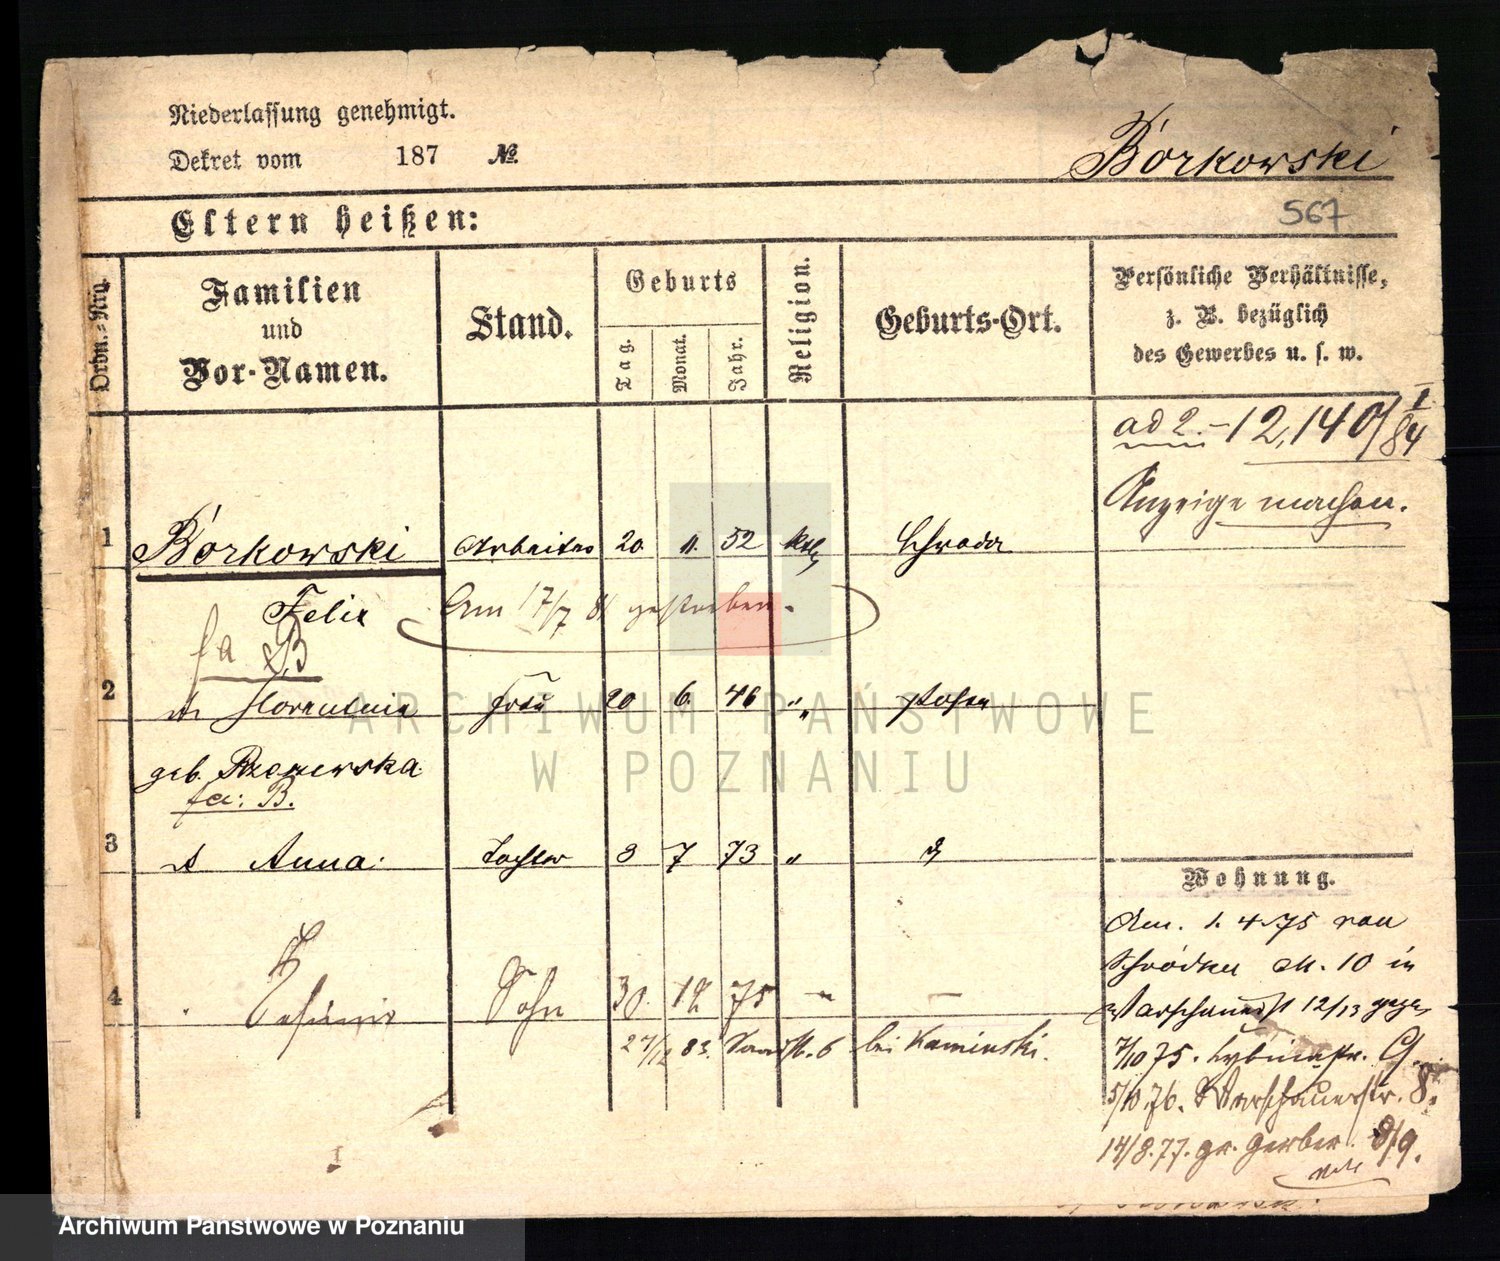 Niederlassung genehmigt.
Dekret vom 187 №
Borkowski
567
Eltern heißen:
Ordn.-Nrg.
Familien
und
Vor-Namen.
Stand.
Geburts
Tag.
Monat.
Jahr.
Religion.
Geburts-Ort.
Persönliche Verhältnisse,
z. B. bezüglich
des Gewerbes u. s. w.
ad 2. - 12,140/ I 84
Anzeige machen.
1 Borkowski Arbeiter 20. 11. 52 kth Schroda
Felix
Am 17/7 81 gestorben.
fa B
2 Florentina Frau 20 6. 46 " Posen
geb.
fa: B.
3 Anna. Tochter 8 7 73 "
Wohnung.
Am. 1. 4. 75 von
Schrodka N. 10 in
Warschauerst 12/13
4 Sohn 30. 12 75 - -
24/12 83. 6 bei Kaminski.
7/10 75. Lybinastr. 9.
5/10.76. Warschauerstr. 8.
14/8.77. gr. Gerber. 8/9.
ARCHIWUM PAŃSTWOWE
W POZNANIU
Archiwum Państwowe w Poznaniu